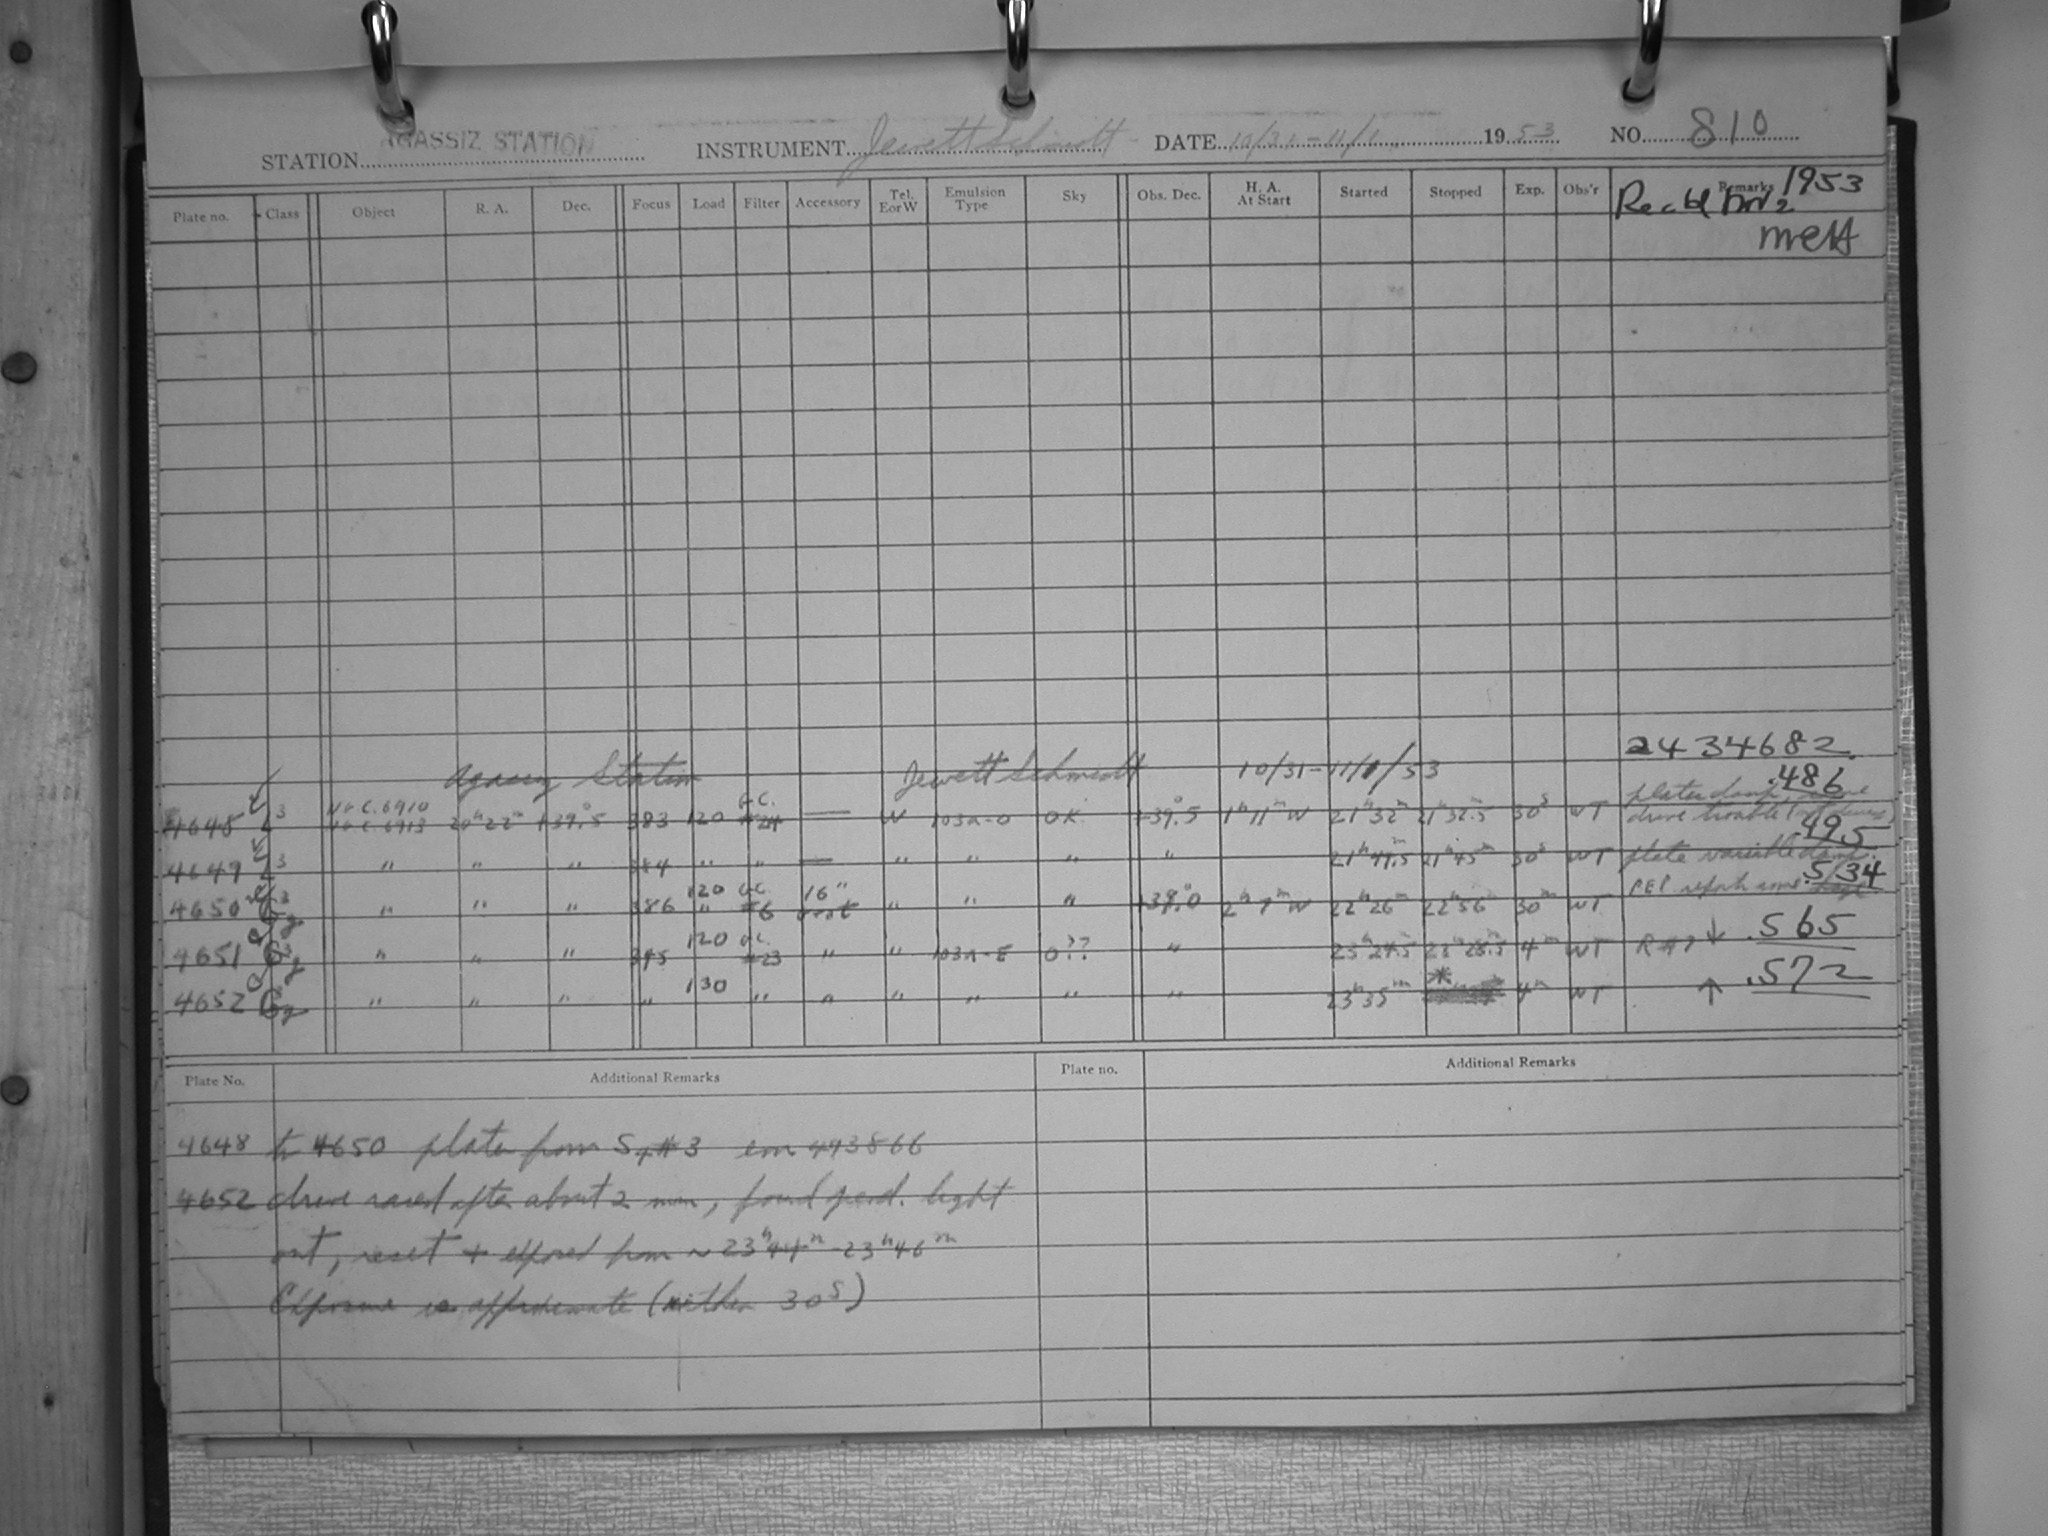 STATION AGASSIZ STATION INSTRUMENT Jewett Schmidt DATE 10/31-11/1 1953 NO. 810
Plate no. Class Object R. A. Dec. Focus Load Filter Accessory Tel. E or W Emulsion Type Sky Obs. Dec. H. A. At Start Started Stopped Exp. Obs'r Remarks 1953
2434682.
Agassiz Station Jewett Schmidt 10/31-11/1/53
.486
4648 L3 N.G.C. 6910 N.G.C. 6913 20h22m +39°.5 383 120 G.C. #24 — W 103a-O OK +39°.5 1h11mW 21h32m 21h32m.5 30s WT plate damp, drive trouble
.495
4649 L3 " " " 384 " " — " " " " 21h44m.5 21h45m 30s WT plate variable damp
.534
4650 3 " " " 386 120 " G.C. #6 16" " " " +39°.0 2h7mW 22h26m 22h56m 30m WT PEP reports some
4651 " " " 395 120 G.C. #23 " " 103a-E O?? " 23h24m.5 23h28m.5 4m WT RH? ↓ .565
4652 " " " " 130 " " " " " " 23h35m * 4m WT ↑ .572
Plate No. Additional Remarks Plate no. Additional Remarks
4648 to 4650 plates from S4#3 em 493866
4652 drive raced after about 2 min, found pend. light
out, reset + exposed from ~ 23h44m-23h46m
Exposure is approximate (within 30s)